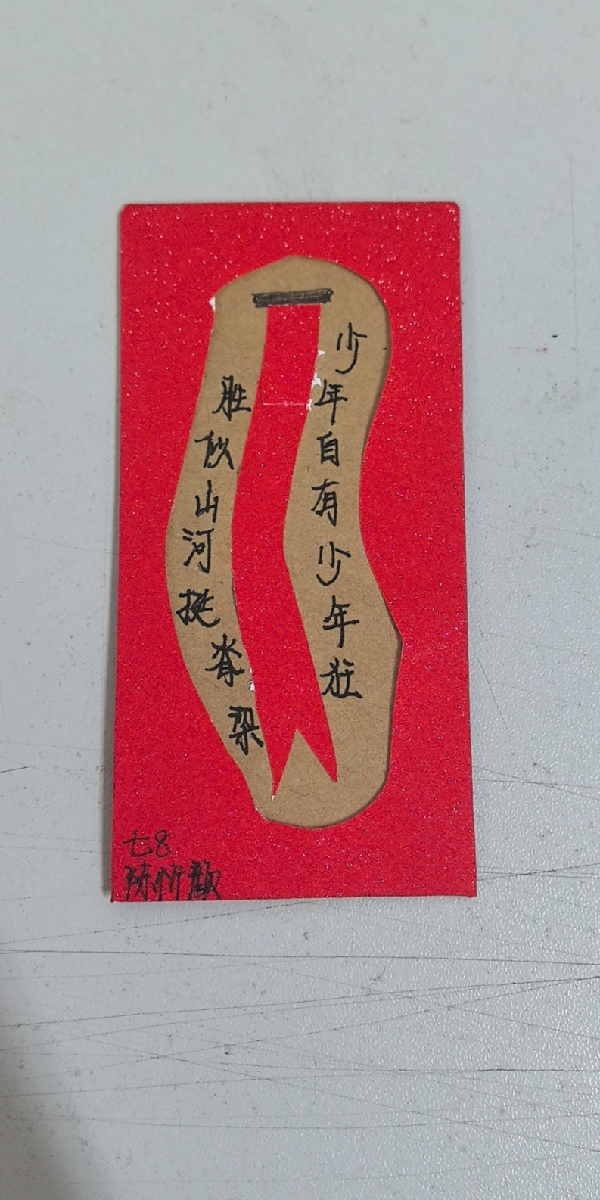 少年自有少年壮
胜似山河挺脊梁
七8
陈忻歆